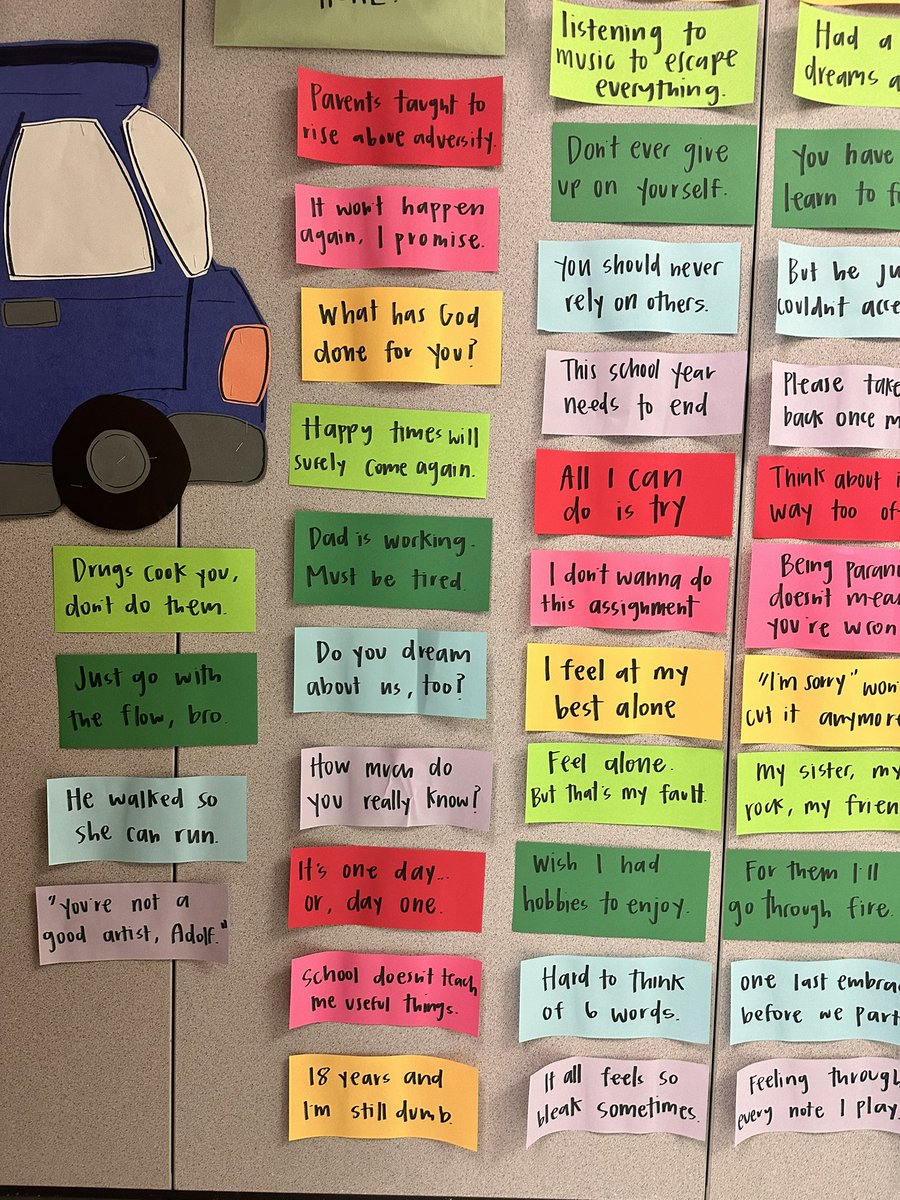 Drugs cook you,
don't do them.
Just go with
the flow, bro.
He walked so
she can run.
"you're not a
good artist, Adolf."
Parents taught to
rise above adversity.
It won't happen
again, I promise.
What has God
done for you?
Happy times will
surely come again.
Dad is working.
Must be tired.
Do you dream
about us, too?
How much do
you really know?
It's one day...
or, day one.
School doesn't teach
me useful things.
18 years and
I'm still dumb.
listening to
music to escape
everything.
Don't ever give
up on yourself.
you should never
rely on others.
This school year
needs to end
All I can
do is try
I don't wanna do
this assignment
I feel at my
best alone
Feel alone.
But that's my fault.
Wish I had
hobbies to enjoy.
Hard to think
of 6 words.
It all feels so
bleak sometimes.
Had a
dreams
You have
learn to
But he
couldn't
Please take
back once
Think about
way too
Being
doesn't
you're
"I'm sorry"
cut it anymore
My sister, my
rock, my
For them I'll
go through fire.
one last
before we
Feeling
every note I play.